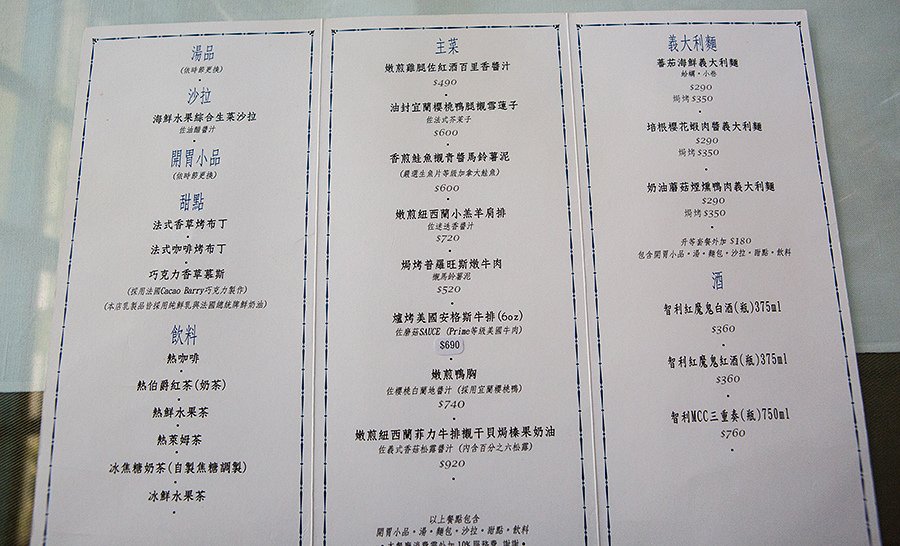 湯品
(依時節更換)
沙拉
海鮮水果綜合生菜沙拉
佐油醋醬汁
開胃小品
(依時節更換)
甜點
法式香草烤布丁
法式咖啡烤布丁
巧克力香草慕斯
(採用法國Cacao Barry巧克力製作)
(本店乳製品皆採用純鮮乳與法國總統牌鮮奶油)
飲料
熱咖啡
熱伯爵紅茶(奶茶)
熱鮮水果茶
熱萊姆茶
冰焦糖奶茶(自製焦糖調製)
冰鮮水果茶
主菜
嫩煎雞腿佐紅酒百里香醬汁
$490
油封宜蘭櫻桃鴨腿襯雪蓮子
佐法式芥茉子
$600
香煎鮭魚襯青醬馬鈴薯泥
(嚴選生魚片等級加拿大鮭魚)
$600
嫩煎紐西蘭小羔羊肩排
佐迷迭香醬汁
$720
焗烤普羅旺斯燉牛肉
襯馬鈴薯泥
$520
爐烤美國安格斯牛排(6oz)
佐蘑菇SAUCE (Prime等級美國牛肉)
$690
嫩煎鴨胸
佐櫻桃白蘭地醬汁 (採用宜蘭櫻桃鴨)
$740
嫩煎紐西蘭菲力牛排襯干貝焗榛果奶油
佐義式香菇松露醬汁 (內含百分之六松露)
$920
以上餐點包含
開胃小品·湯·麵包·沙拉·甜點·飲料
·本餐廳消費需外加10%服務費 謝謝·
義大利麵
蕃茄海鮮義大利麵
蛤蠣·小卷
$290
焗烤 $350
培根櫻花蝦肉醬義大利麵
$290
焗烤 $350
奶油蘑菇煙燻鴨肉義大利麵
$290
焗烤 $350
升等套餐外加 $180
包含開胃小品·湯·麵包·沙拉·甜點·飲料
酒
智利紅魔鬼白酒(瓶)375ml
$360
智利紅魔鬼紅酒(瓶)375ml
$360
智利MCC三重奏(瓶)750ml
$760